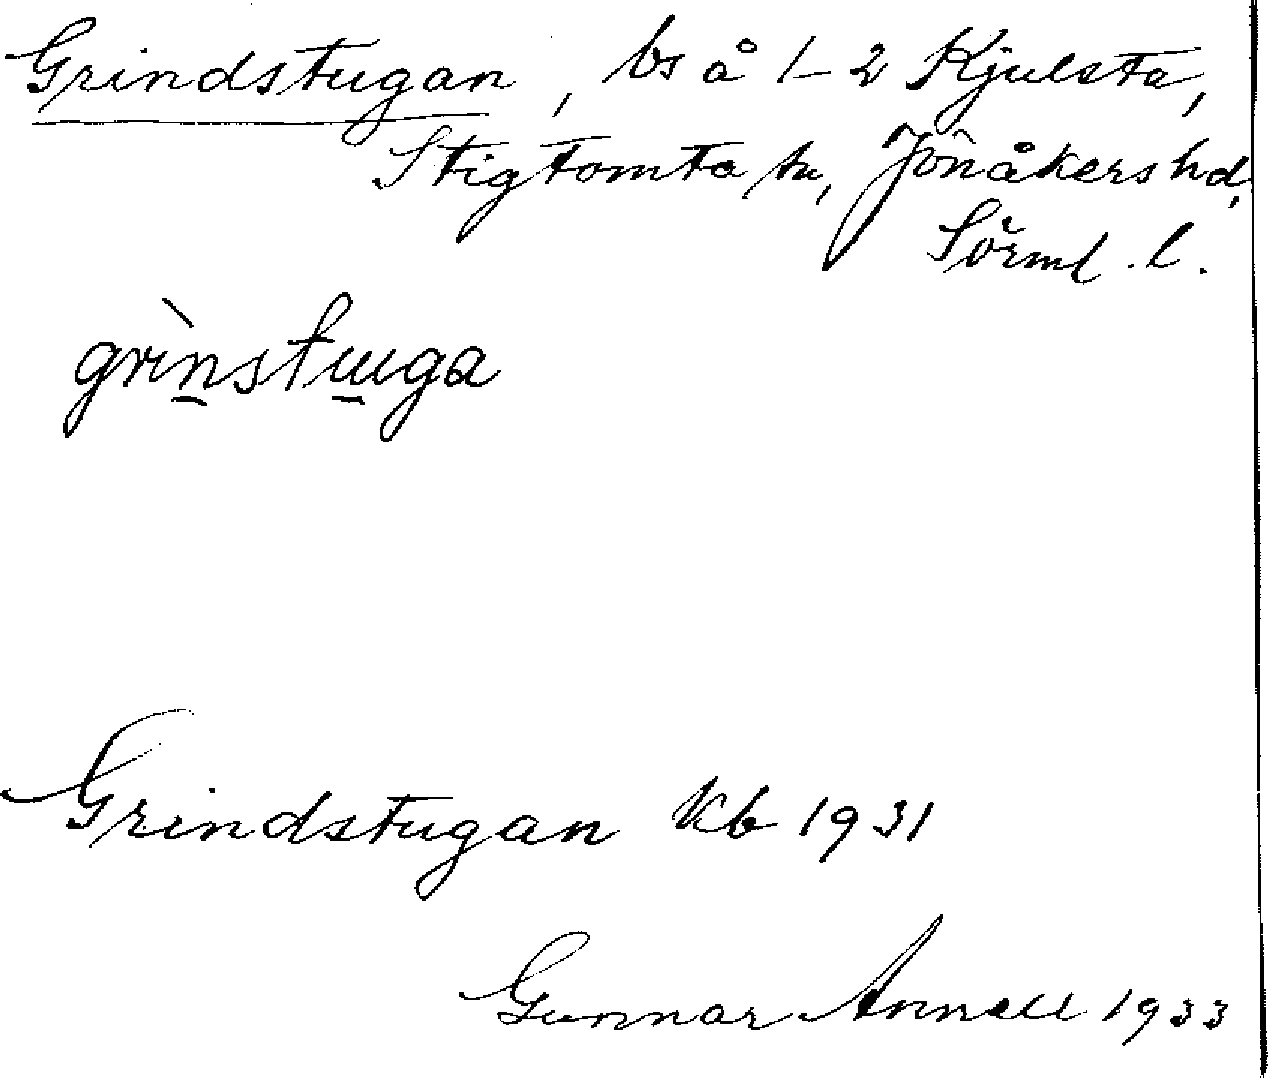 Grindstugan, bs å 1-2 Kjulsta,
Stigtomta sn, Jönåkers hd,
Sörml. l.
grìnstuga
Grindstugan kb 1931
Gunnar Annell 1933